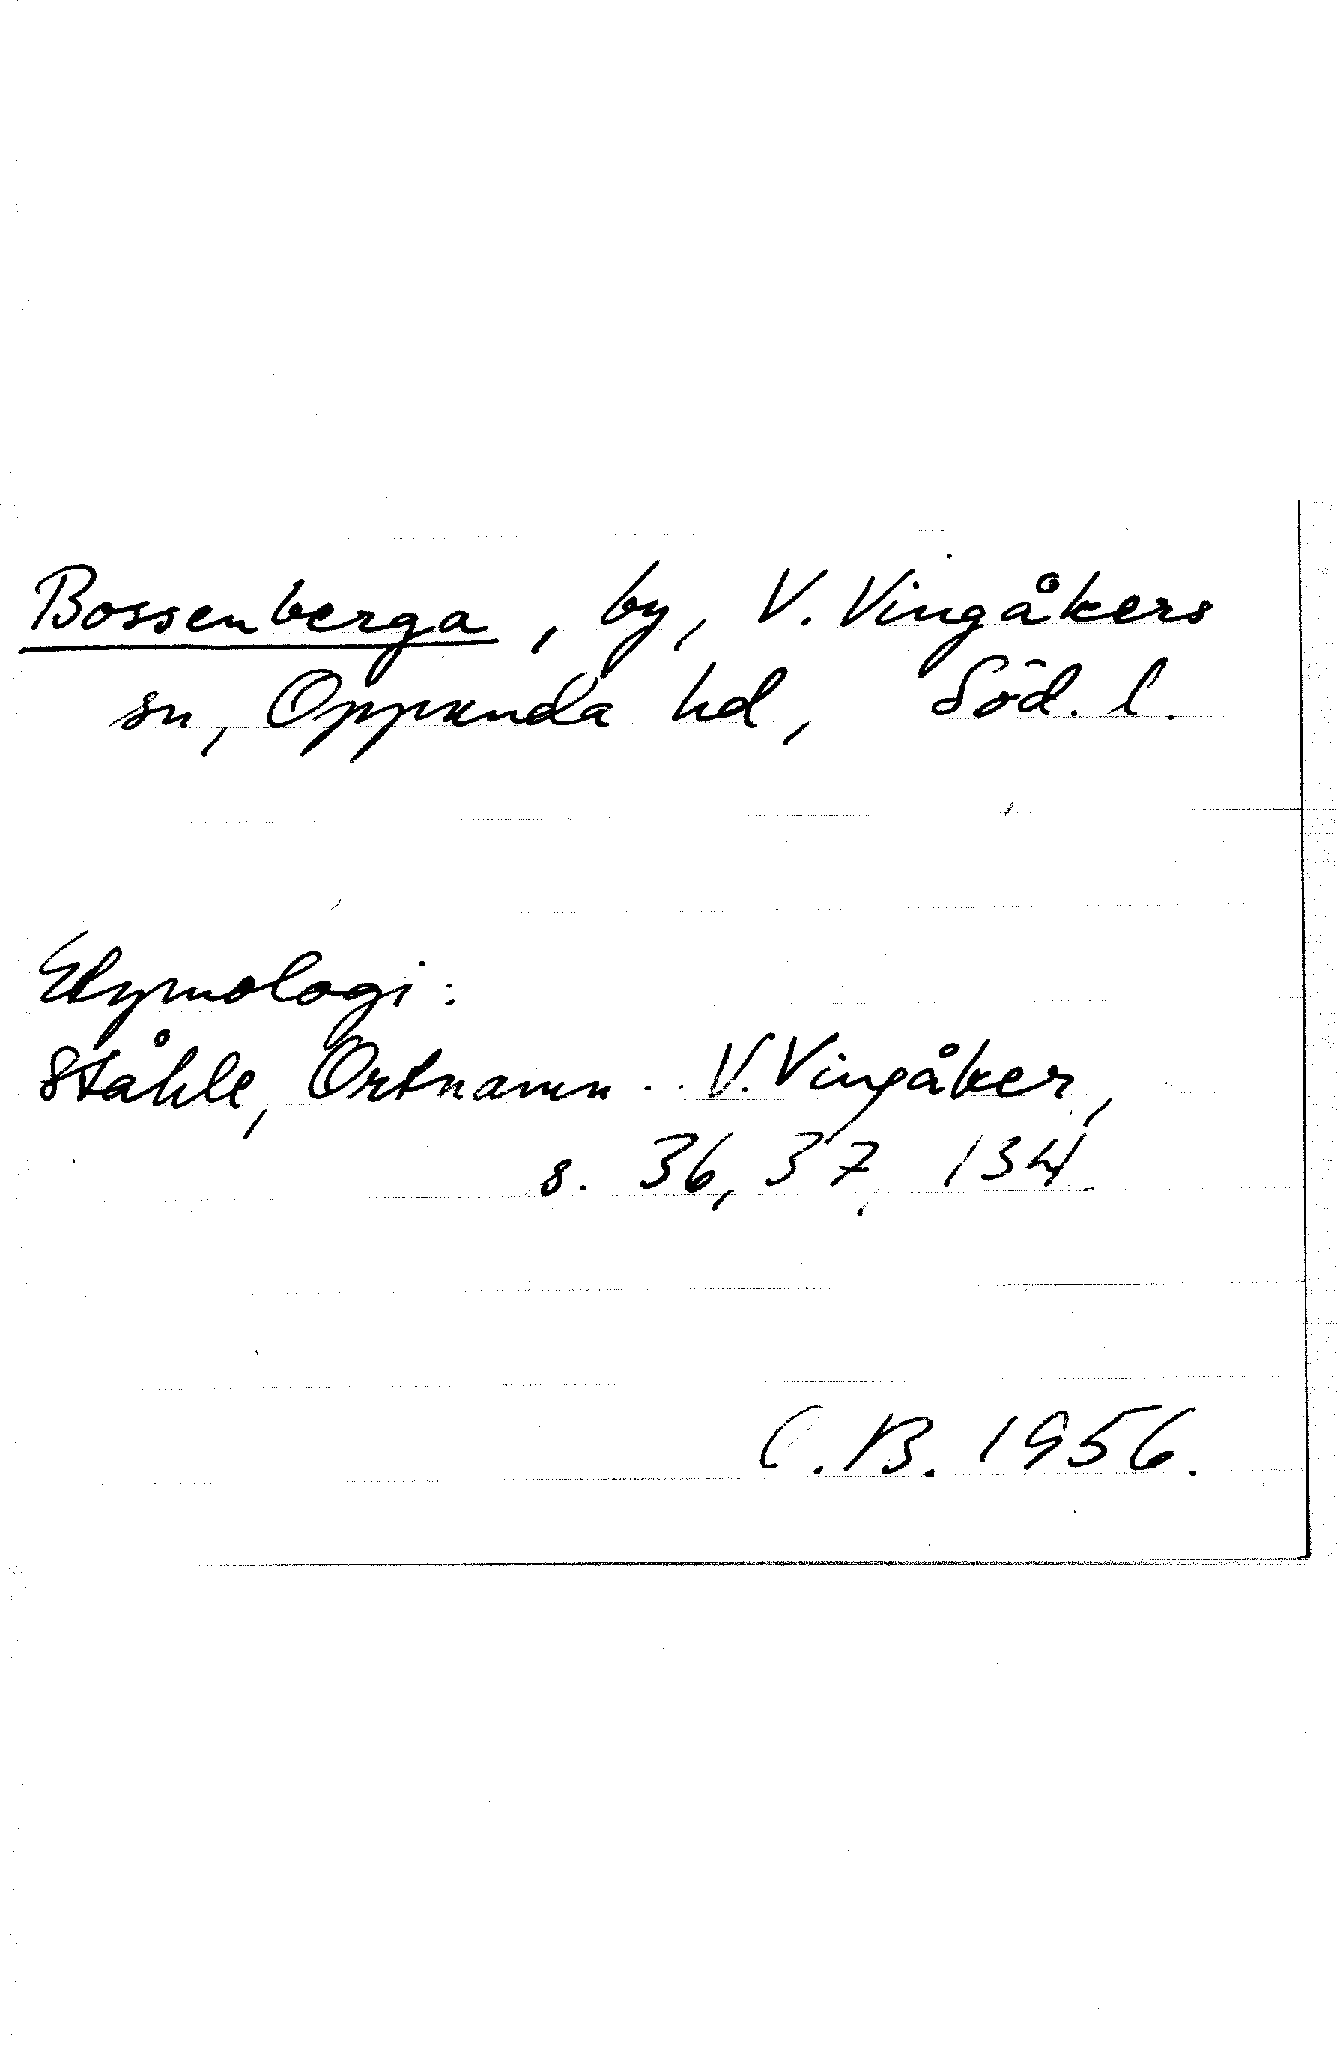 Bossenberga, by, V. Vingåkers
sn, Oppunda hd, Söd. l.
Etymologi:
Ståhle, Ortnamn .. V. Vingåker,
s. 36, 37, 134
C. B. 1956.